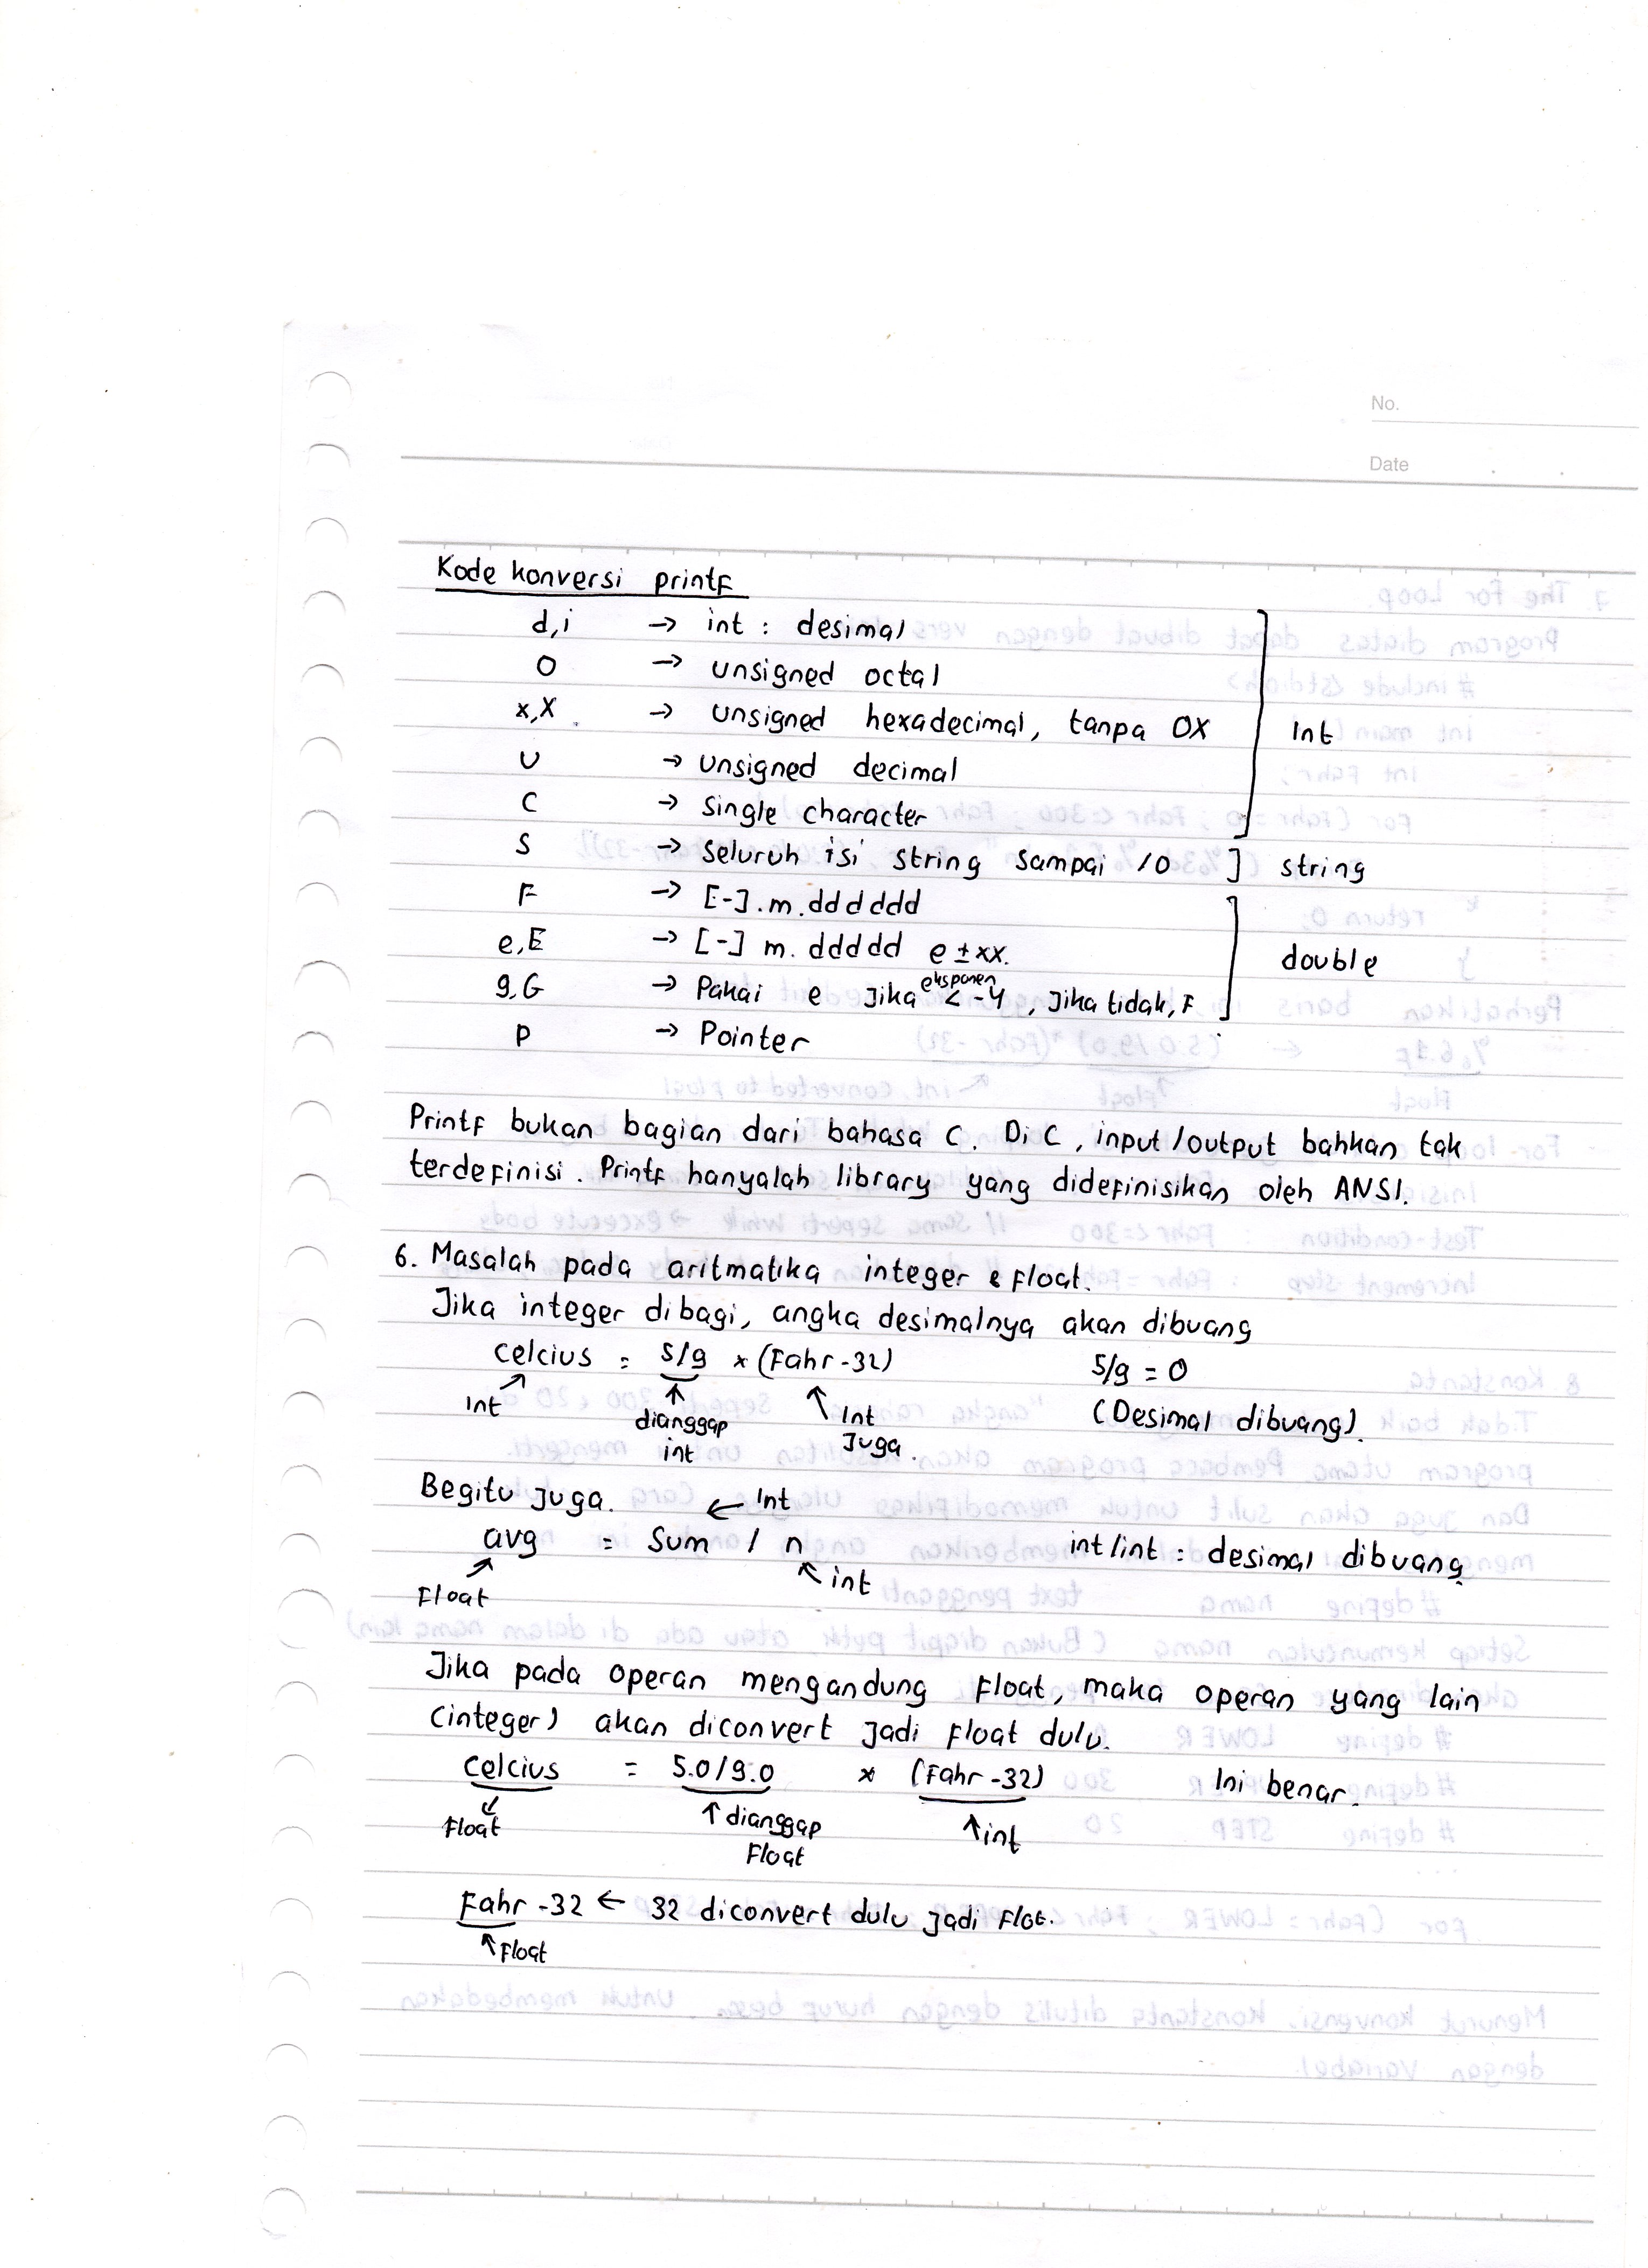 No.
Date
Kode konversi printf
d,i → int : desimal
o → unsigned octal
x,X → unsigned hexadecimal, tanpa 0X
Int
u → unsigned decimal
c → single character
s → seluruh isi string sampai /0 ] string
F → [-].m.dddddd
e,E → [-] m. ddddd e ±xx.
double
g,G → Pakai e jika eksponen < -4 , jika tidak, F
p → Pointer
Printf bukan bagian dari bahasa C. Di C, input/output bahkan tak
terdefinisi. Printf hanyalah library yang didefinisikan oleh ANSI.
6. Masalah pada aritmatika integer & float.
Jika integer dibagi, angka desimalnya akan dibuang
celcius = 5/9 × (Fahr-32) 5/9 = 0
Int dianggap int Int juga. (Desimal dibuang).
Begitu juga. ← Int
avg = Sum / n int/int = desimal dibuang.
Float int
Jika pada operan mengandung float, maka operan yang lain
(integer) akan diconvert jadi float dulu.
celcius = 5.0/9.0 * (Fahr-32) Ini benar.
float ↑ dianggap float ↑ int
Fahr -32 ← 32 diconvert dulu jadi flot.
↑ float